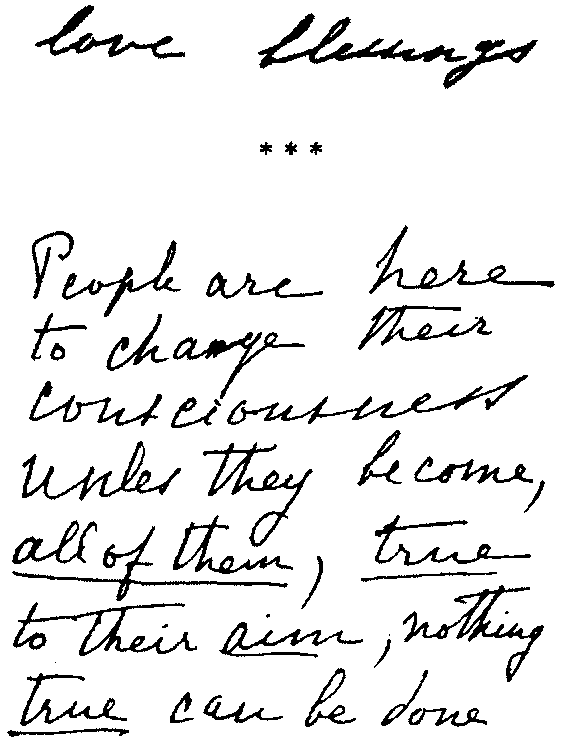 love blessings
***
People are here
to change their
consciousness
Unles they become,
all of them, true
to their aim, nothing
true can be done